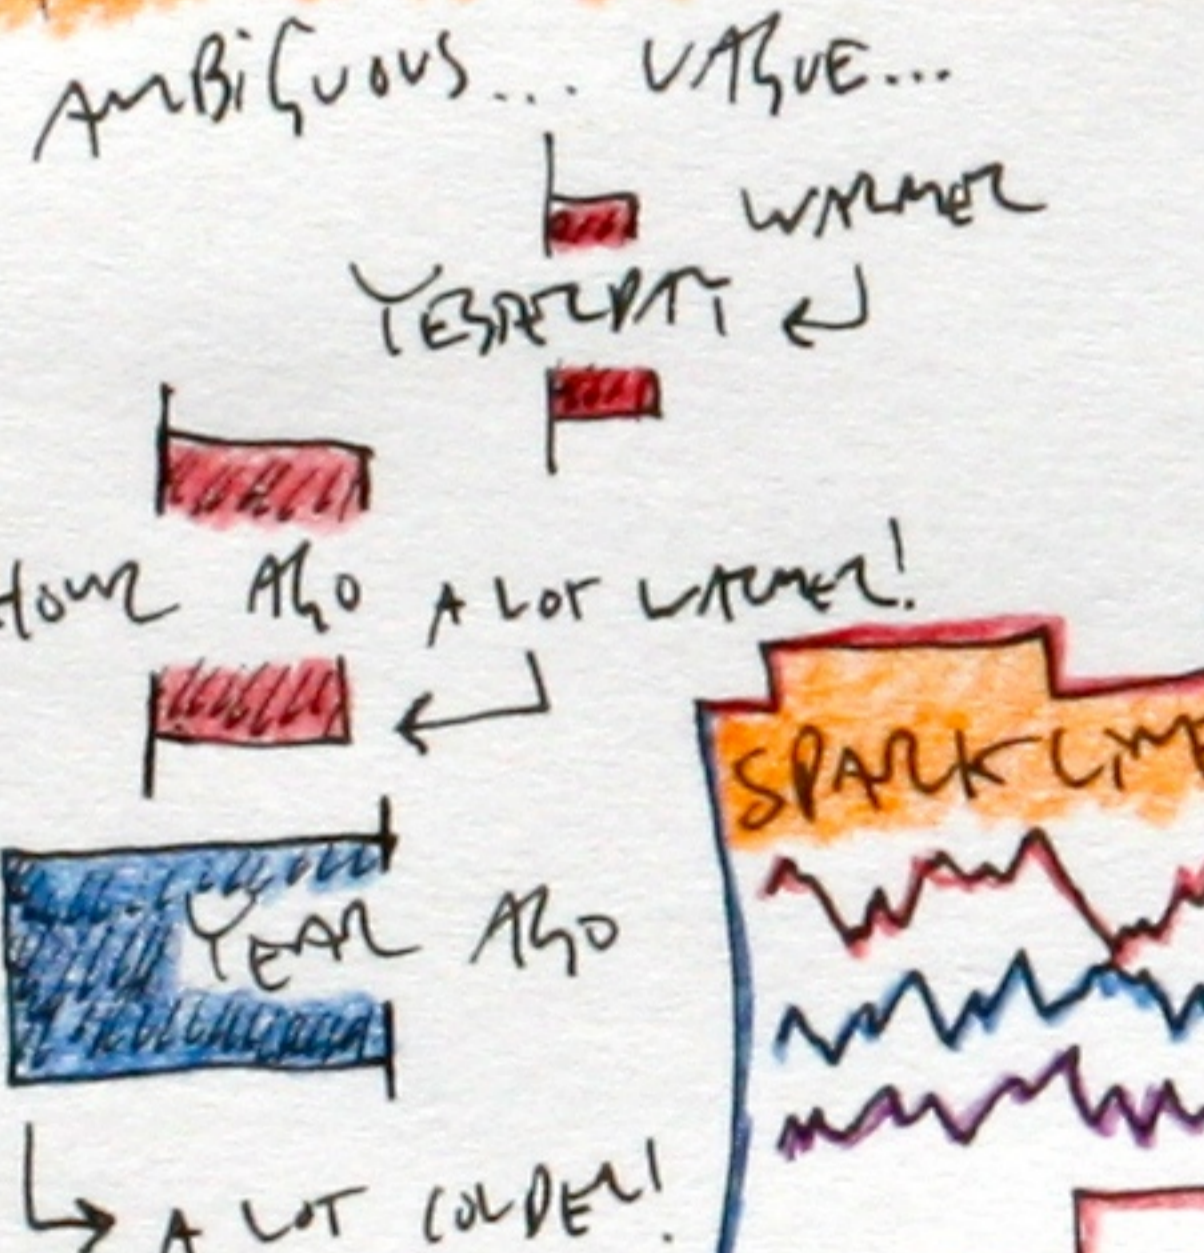 AMBIGUOUS... VAGUE...
WARMER
YESTERDAY
HOUR AGO
A LOT WARMER!
SPARKLIN
YEAR AGO
A LOT COLDER!